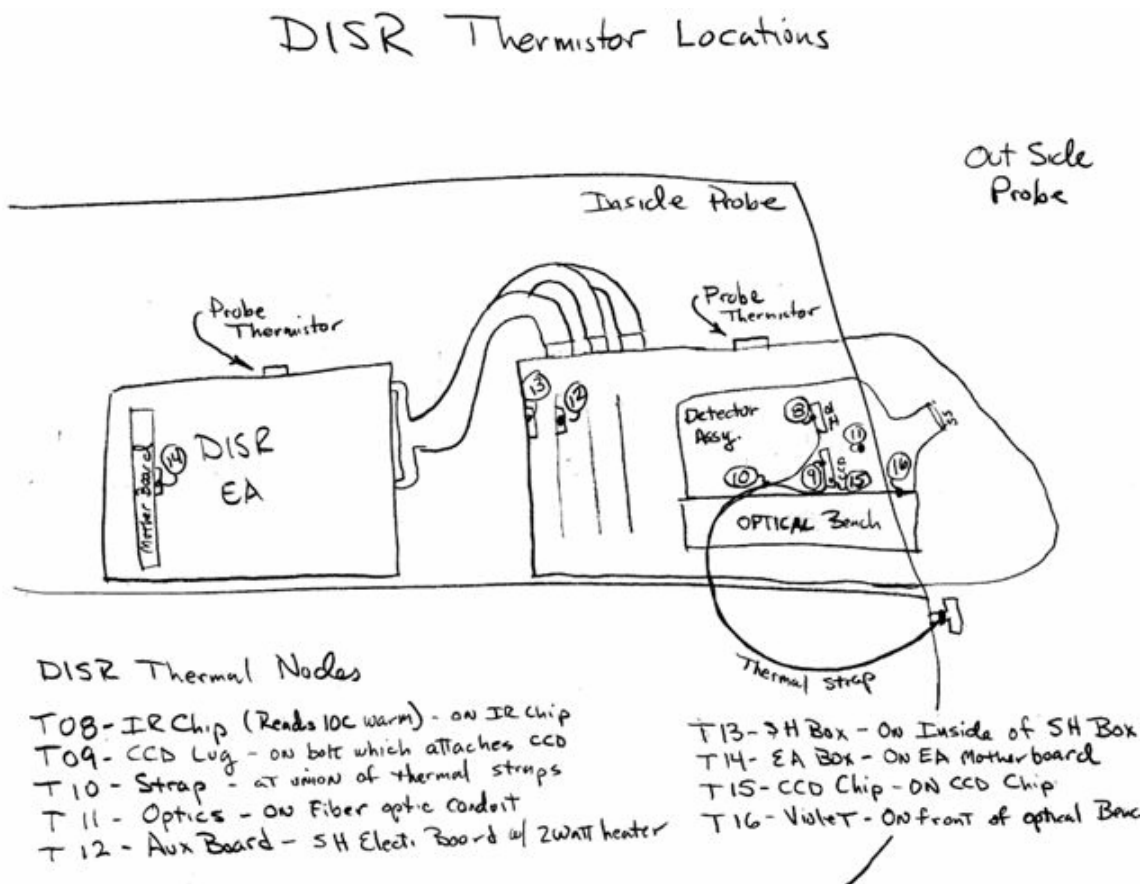 DISR Thermistor Locations
Out Side
Probe
Inside Probe
Probe
Thermistor
Probe
Thermistor
13
12
Detector
Assy.
8
IR
11
14
Mother Board
DISR
EA
10
9
CCD
15
16
OPTICAL Bench
Thermal Strap
DISR Thermal Nodes
T08 - IR Chip (Reads 10C warm) - ON IR Chip
T09 - CCD Lug - on bolt which attaches CCD
T 10 - Strap - at union of thermal straps
T 11 - Optics - ON Fiber optic conduit
T 12 - Aux Board - SH Elect. Board w/ 2watt heater
T13 - SH Box - On Inside of SH Box
T14 - EA Box - ON EA Motherboard
T15 - CCD Chip - ON CCD Chip
T16 - Violet - On front of optical Benc